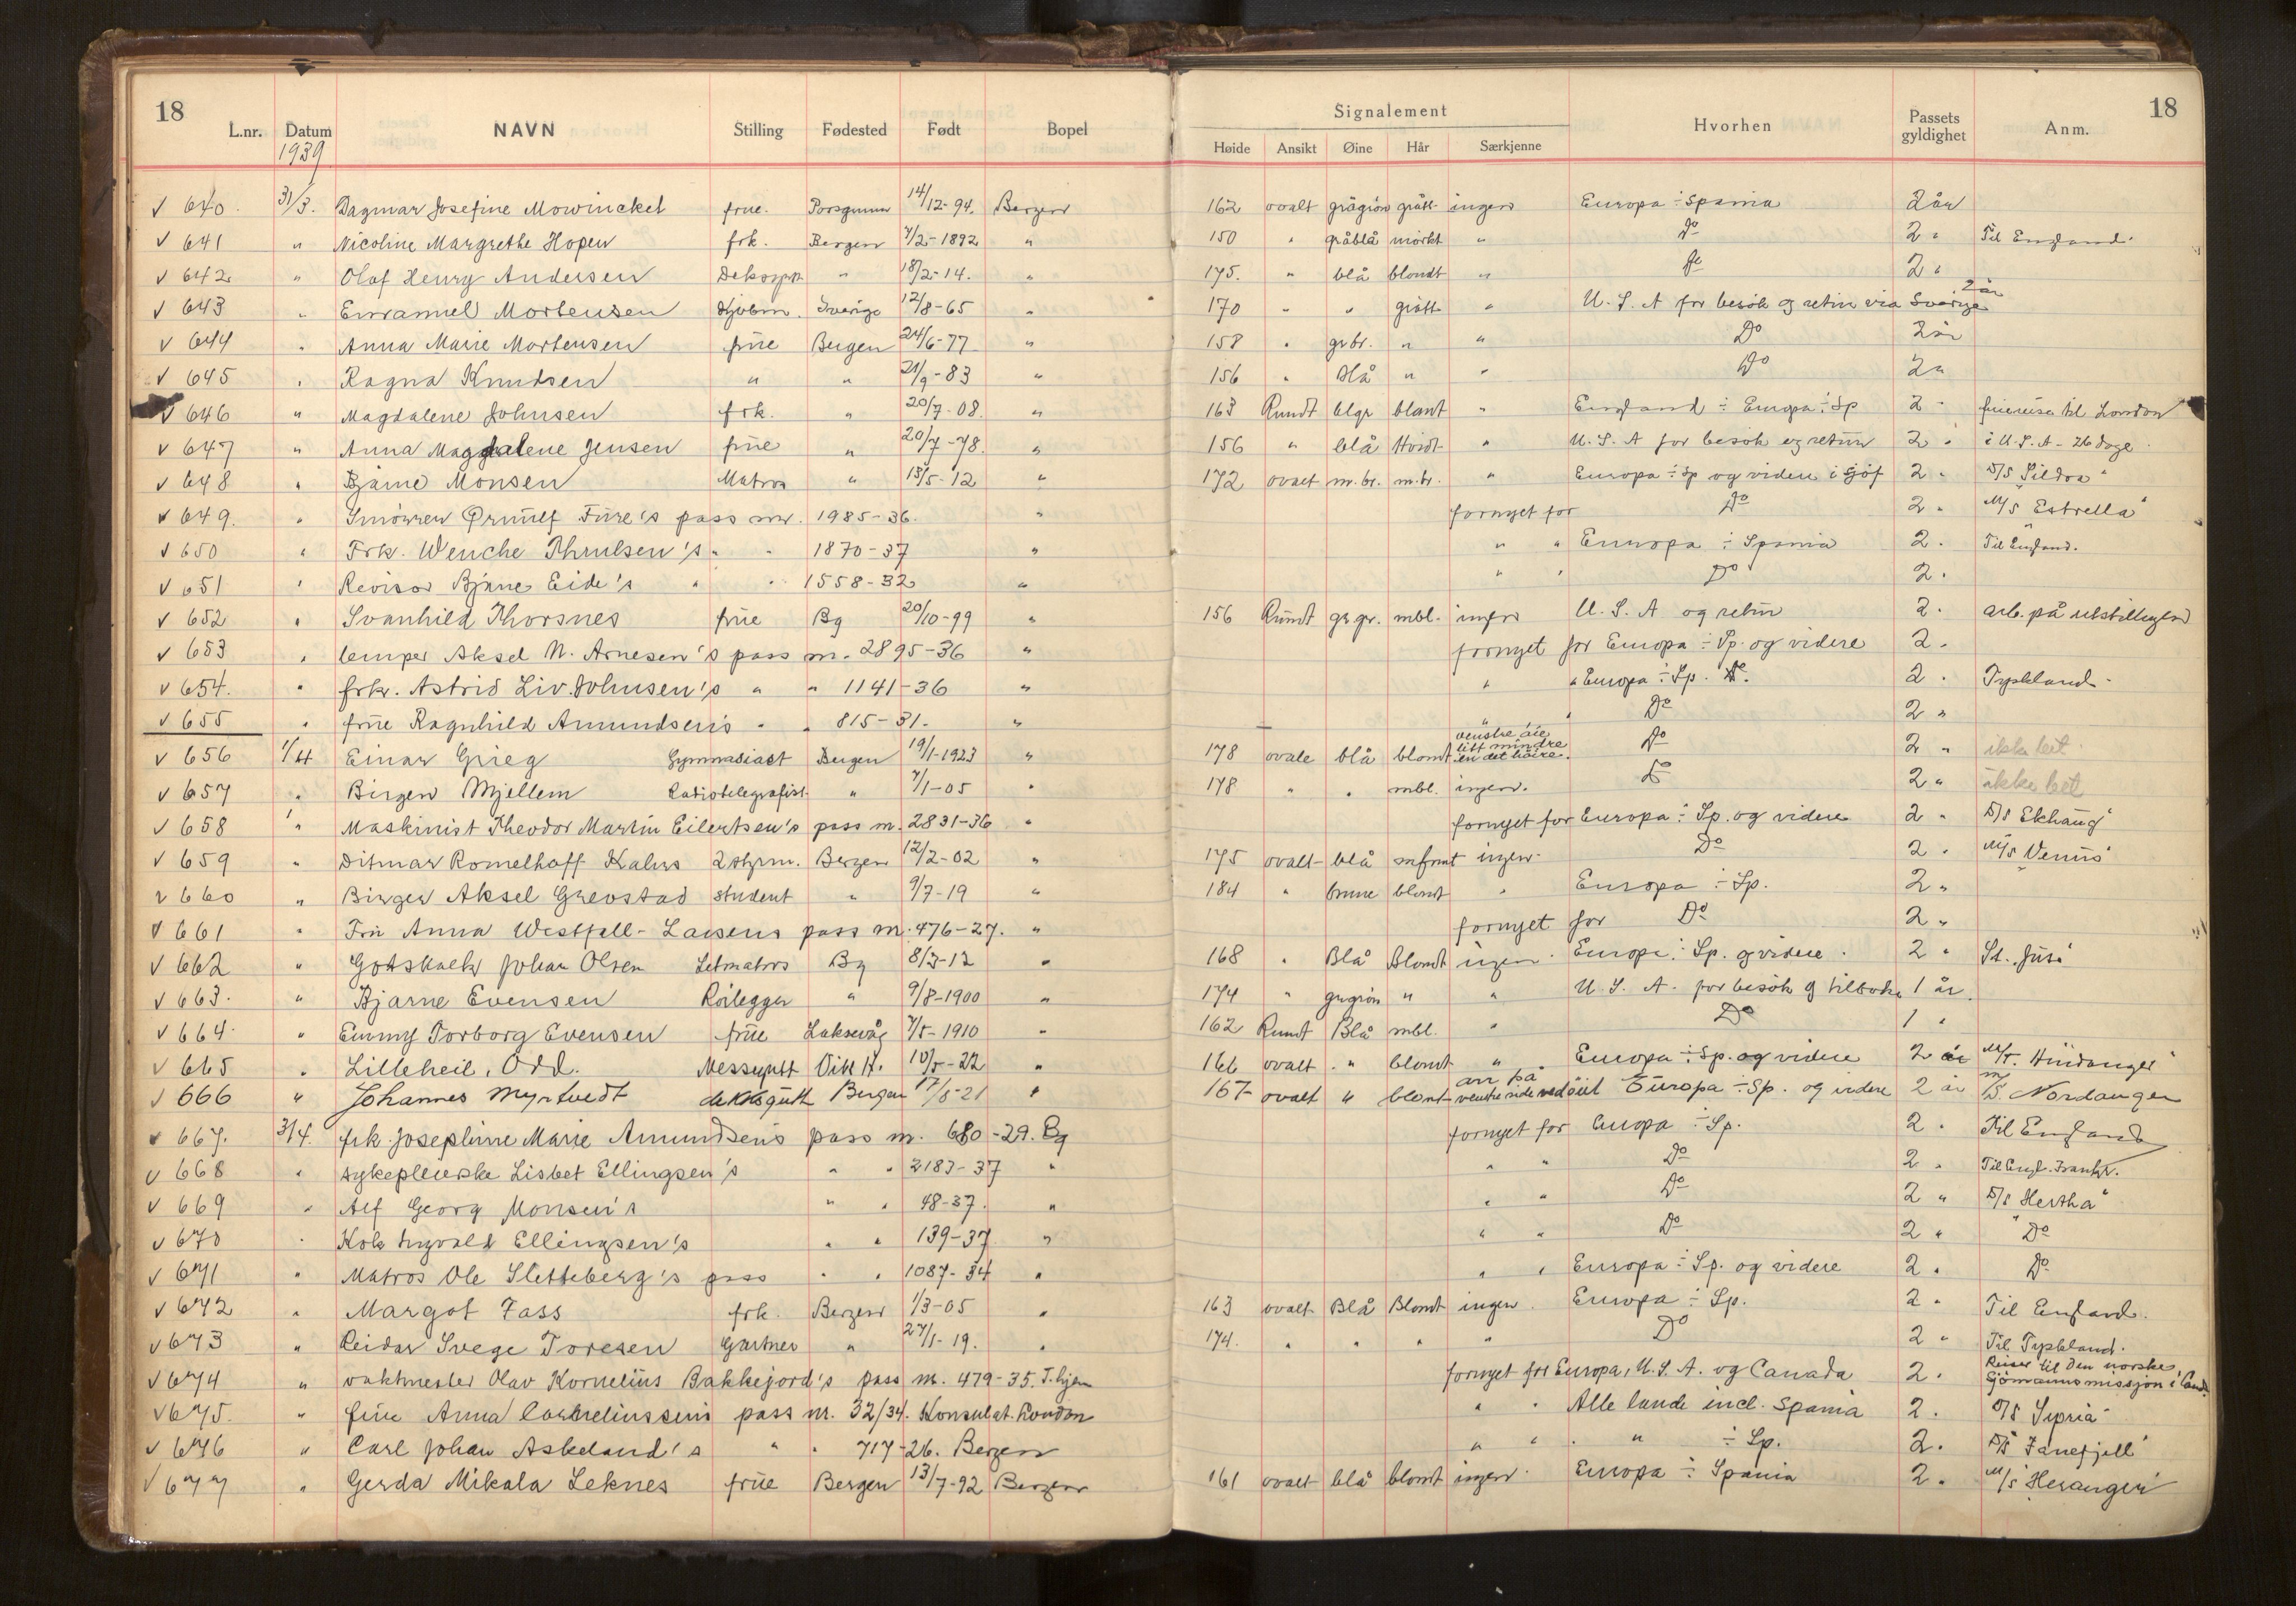 18 18
Signalement
L.nr. Datum NAVN Stilling Fødested Født Bopel Høide Ansikt Øine Hår Særkjenne Hvorhen Passets gyldighet Anm.
1939
v 640. 31/3. Dagmar Josefine Mowinckel frue. Porsgrunn 14/12-94. Bergen 162 ovalt grågrön grått ingen Europa ÷ Spania 2 år
v 641 " Nicoline Margrethe Hopen frk. Bergen 7/2-1892 " 150 " gråblå mörkt " Do 2 " Til England.
v 642 " Olaf Henry Andersen " 18/2-14. " 175. " blå blondt " Do 2 "
v 643 " Emanuel Mortensen Kjøbm. Sverige 12/8-65 " 170 " " grått " U.S.A for besök og retur via Sverige 2 år
v 644 " Anna Marie Mortensen frue Bergen 24/6-77 " 158 " gr.br. " " Do 2 år
v 645 " Ragna Knudsen " " 21/9-83 " 156 " Blå " " Do 2 "
v 646 " Magdalene Johnsen frk. " 20/7-08. " 163 Rundt blgr blont " England ÷ Europa ÷ Sp 2 " feriereise til London
v 647 " Anna Magdalene Jensen frue " 20/7-78. " 156 " blå Hvidt " U.S.A for besök og retur 2 " i U.S.A - 26 dage.
v 648 " Bjarne Monsen Matros " 15/5-12 " 172 ovalt m.br. m.br. " Europa ÷ Sp og videre i sjöf 2 " D/S "Sildra"
v 649. " Smörer Ørnulf Fure's pass nr. 1985-36. " fornyet for Do 2 " M/S "Estrella"
v 650 " Frk. Wenche Thrulsen's " " 1870-37 " " " Europa ÷ Spania 2. Til England.
v 651 " Revisor Bjarne Eide's " " 1558-32 " " " Do 2.
v 652 " Svanhild Thorsnes frue Bg 20/10-99 " 156 Rundt gr.gr. mbl. ingen U.S.A og retur 2. arb. på utstillingen
v 653 " lemper Aksel N. Arnesen's pass nr. 2895-36 " fornyet for Europa ÷ Sp. og videre 2.
v 654. " frk. Astrid Liv Johnsen's " " 1141-36 " " " Europa ÷ Sp. Do. 2. Tyskland.
v 655 " frue Ragnhild Amundsen's " " 815-31. " " " Do 2 "
v 656 1/4 Einar Grieg Gymnasiast Bergen 19/1-1923 " 178 ovale blå blondt venstre öie litt mindre en det höire. Do 2 "
v 657 " Birger Mjellem Radiotelegrafist. " 7/1-05 " 178. " " mbl. ingen. Do 2 "
v 658 " Maskinist Theodor Martin Eilertsen's pass nr. 2831-36 " fornyet for Europa ÷ Sp. og videre 2 " D/S "Ekhaug"
v 659 " Ditmar Romelhoff Kahrs 2 styrm. Bergen 12/2-02 " 175 ovalt blå ingen. Do 2 " M/S "Venus"
v 660 " Birger Aksel Grevstad student " 9/7-19 " 184 " brune blondt " Europa ÷ Sp. 2 "
v 661 " Fru Anna Westfell-Larsens pass nr. 476-27. " fornyet for Do 2 "
v 662 " Gotskalk Johan Olsen Letmatros Bg 8/3-12 " 168 " Blå Blondt ingen. Europa ÷ Sp. og videre. 2 "
v 663. " Bjarne Evensen Rörlegger " 9/8-1900 " 174 " grgrön " " U.S.A. for besök og tilbake 1 år.
v 664. " Emmy Torborg Evensen frue Laksevåg 7/5-1910 " 162 Rundt Blå mbl. " Do 1 "
v 665 " Lilleheil, Odd. Messegutt Vik H. 10/5-22 " 166 ovalt " blondt " Europa ÷ Sp. og videre 2 år M/S. "Hindanger"
v 666 " Johannes Myrtvedt dekksgutt Bergen 17/5-21 " 167 ovalt " blont arr på venstre side ved öiet Europa ÷ Sp. og videre 2 år M/S. Nordanger
v 667. 3/4. frk. Josephine Marie Amundsens pass nr. 680-29. Bg fornyet for Europa ÷ Sp. 2. Til England
v 668 " sykepleierske Lisbet Ellingsen's " " 2183-37 " " " Do 2 " Til Engl. Frankr.
v 669 " Alf Georg Monsen's " " 48-37. " " " Do 2 " D/S "Hertha"
v 670 " Kok Ingvald Ellingsen's " " 139-37 " " " Do 2 " " Do
v 671 " Matros Ole Sletteberg's pass " " 1087-34 " " " Europa ÷ Sp. og videre 2 " Do
v 672 " Margot Fass frk. Bergen 1/3-05 " 163 ovalt Blå Blondt ingen. Europa ÷ Sp. 2 " Til England.
v 673 " Reidar Svege Toresen Gartner " 27/1-19. " 174. " " " " Do 2 " Til Tyskland.
v 674 " vaktmester Olav Kornelius Bakkejord's pass nr. 479-35. T.hjem fornyet for Europa, U.S.A. og Canada 2. Reiser til den norske Sjömannsmissjon i Cand.
v 675. " frue Anna Corneliussens pass nr. 32/34. Konsulat. London " " Alle lande incl. Spania 2. D/S "Sypria"
v 676 " Carl Johan Askeland's " " 717-26. Bergen " " " " ÷ Sp. 2. D/S "Fanefjell"
v 677 " Gerda Mikala Leknes frue Bergen 13/7-92 Bergen 161 ovalt blå blondt ingen. Europa ÷ Spania 2. M/S "Heranger"